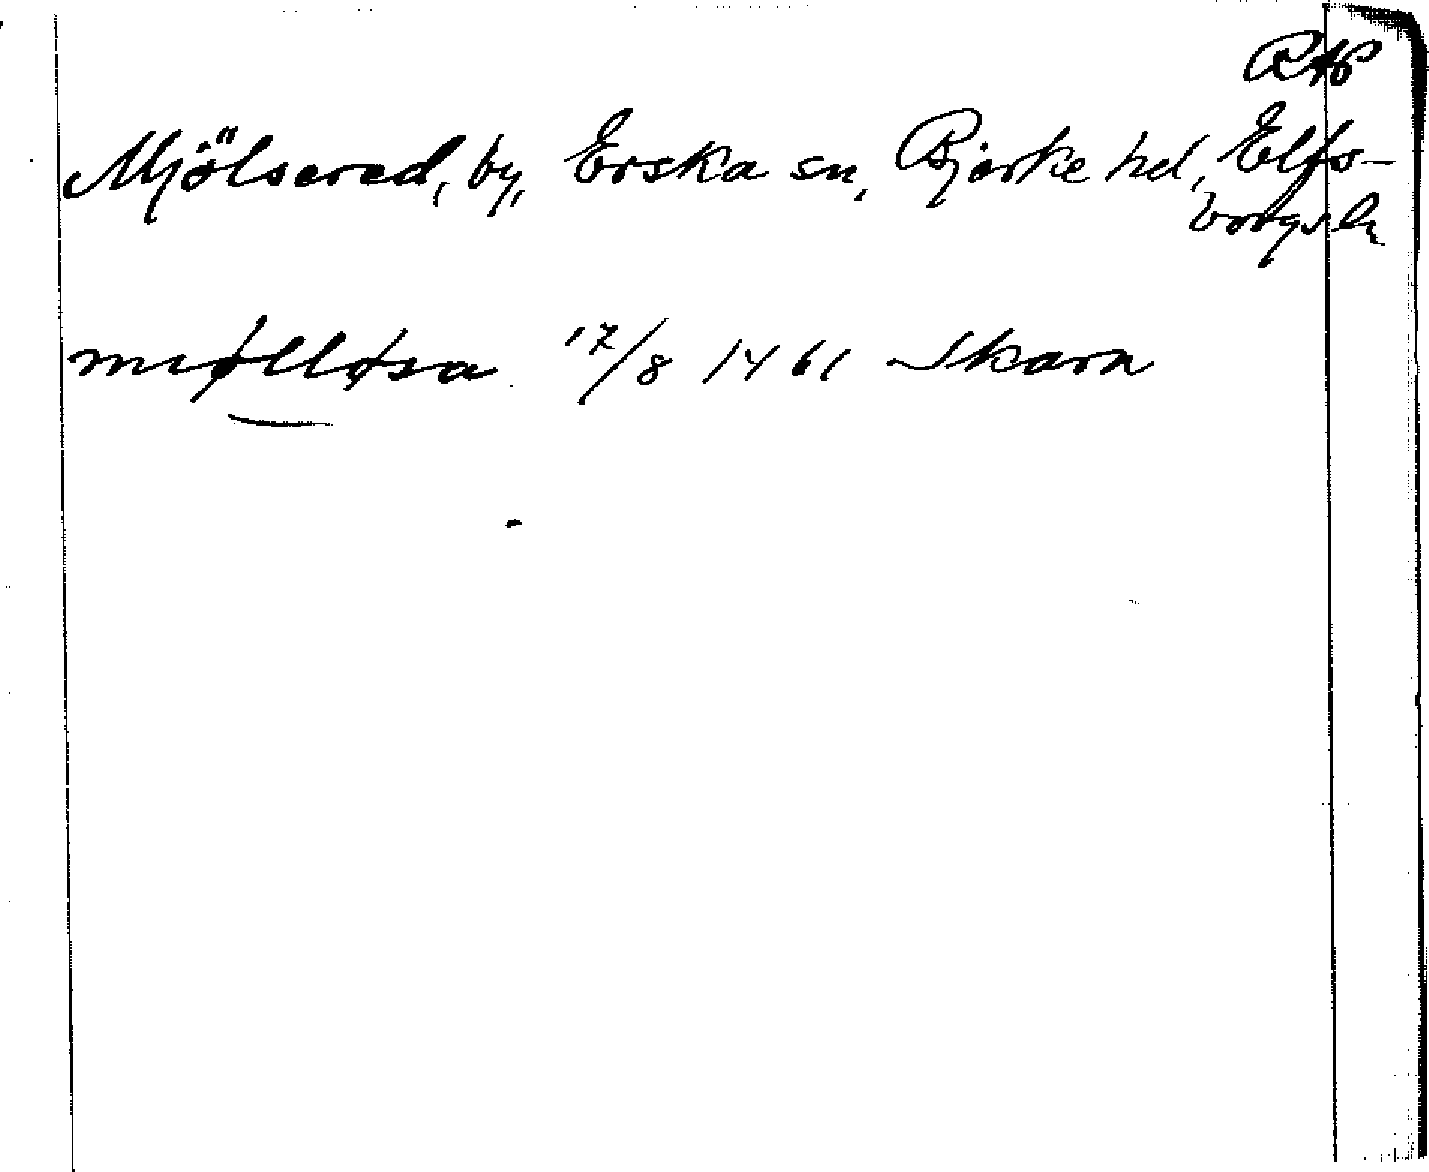 RAP
Mjölsered, by, Erska sn, Bjerke hd, Elfs-
borgs l.
miølløsa 17/8 1461 Skara